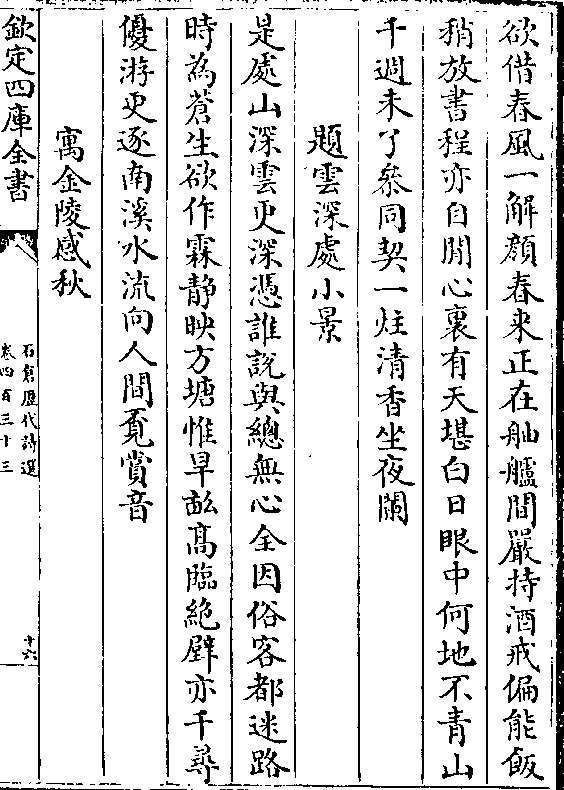 欲借春風一解顔春来正在舳艫間嚴持酒戒偏能飯
稍放書程亦自閒心裏有天堪白日眼中何地不青山
千週未了叅同契一炷清香坐夜闌
題雲深處小景
是處山深雲更深憑誰説與總無心全因俗客都迷路
時為蒼生欲作霖静映方塘惟旱畝髙臨絶壁亦千尋
優游更逐南溪水流向人間覓賞音
寓金陵感秋
欽定四庫全書
石倉歴代詩選
卷四百三十三
十六